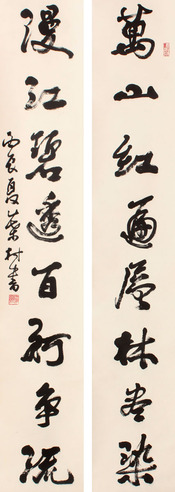 萬山紅遍層林尽染
漫江碧透百舸争流
丙辰夏柴村書